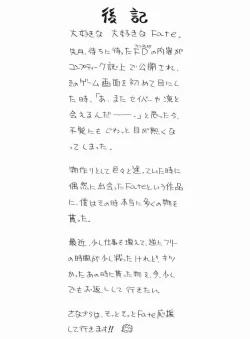 後記
大好きな 大好きな Fate。
先月、待ちに待ったFDの内容が
コンプティーク誌上で公開され、
そのゲーム画面を初めて目にし
た時、「あ、またセイバーや凛と
会えるんだ――…」と思ったら、
不覚にもぐわっと目が熱くな
ってしまった。
物作りとして色々と迷っていた時に
偶然に出会ったFateという作品
に、僕はその時本当に多くの物を
貰った。
最近、少し仕事も増えて、逆にフリー
の時間が少し減ったけれど、キツ
かったあの時に貰った物を、今、少し
でもお返しして行きたい。
さなづらは、もっともっとFate応援
して行きます!!